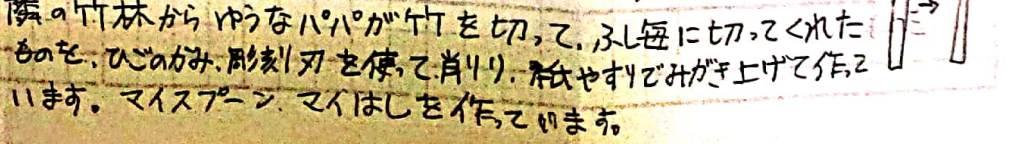 隣の竹林からゆうなパパが竹を切って、ふし毎に切ってくれた
ものを、ひごのかみ、彫刻刃を使って削り、紙やすりでみがき上げて作って
います。マイスプーン、マイはしを作っています。